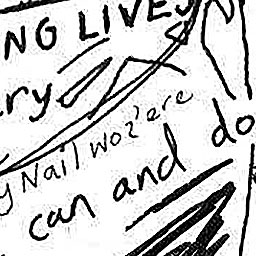 NG LIVES
ry
y Nail woz'ere
can and do